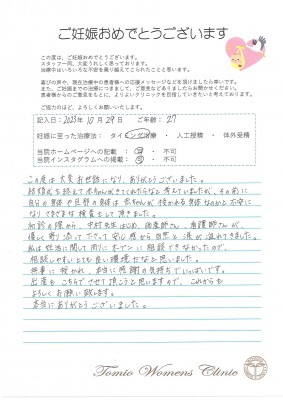 ご妊娠おめでとうございます
この度は、ご妊娠おめでとうございます。
スタッフ一同、大変うれしく思っております。
治療中はいろいろな不安を乗り越えてこられたことと思います。
喜びの声や、現在治療中の患者様への応援メッセージなどを頂けましたら幸いです。
また、ご妊娠までの治療につきまして、ご意見などもお聞かせください。
患者様からのご意見をもとに、よりよいクリニックを目指していきたいと考えております。
ご協力のほど、よろしくお願いいたします。
記入日:2025年10月29日 ご年齢:27
妊娠に至った治療法: タイミング治療 ・ 人工授精 ・ 体外受精
当院ホームページへの掲載: 可 ・ 不可
当院インスタグラムへの掲載: 可 ・ 不可
この度は大変お世話になり、ありがとうございました。
結婚式を終えて赤ちゃんができてくれたらなと考えていましたが、その前に
自分の身体や旦那の身体は赤ちゃんが授かれる身体なのかと不安に
なりさまざまな検査をして頂きました。
初診の際から、中村先生はじめ、看護師さんが
優しく寄り添って下さって安心感から自然と涙が溢れてきました。
私は性格に関して周りにオープンに相談できなかったので、
相談しやすくとても良い環境だなと思いました。
無事に授かれ、本当に感謝の気持ちでいっぱいです。
出産もこちらでさせて頂こうと思いますので、これからも
よろしくお願い致します。
本当にありがとうございました。
Tomio Womens Clinic